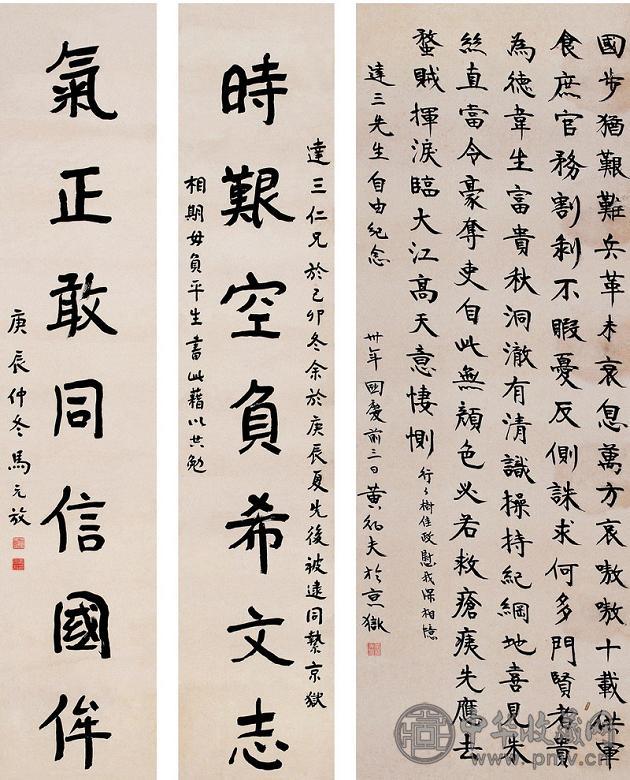 國步猶艱難兵革未衰息萬方哀嗷嗷十載供軍
食庶官務割剥不暇憂反側誅求何多門賢者貴
為德韋生富貴秋洞澈有清識操持紀綱地喜見朱
絲直當令豪奪吏自此無顏色必若救瘡痍先應去
蝥賊揮淚臨大江高天意悽惻
行々樹佳政慰我深相憶
達三先生自由紀念
卅年國慶前三日黃夫於京獄
達三仁兄於己卯冬余於庚辰夏先後被逮同繫京獄
時艱空負希文志
相期毋負平生書此藉以共勉
氣正敢同信國侔
庚辰仲冬馬元放
中华收藏网
www.pmv.cn